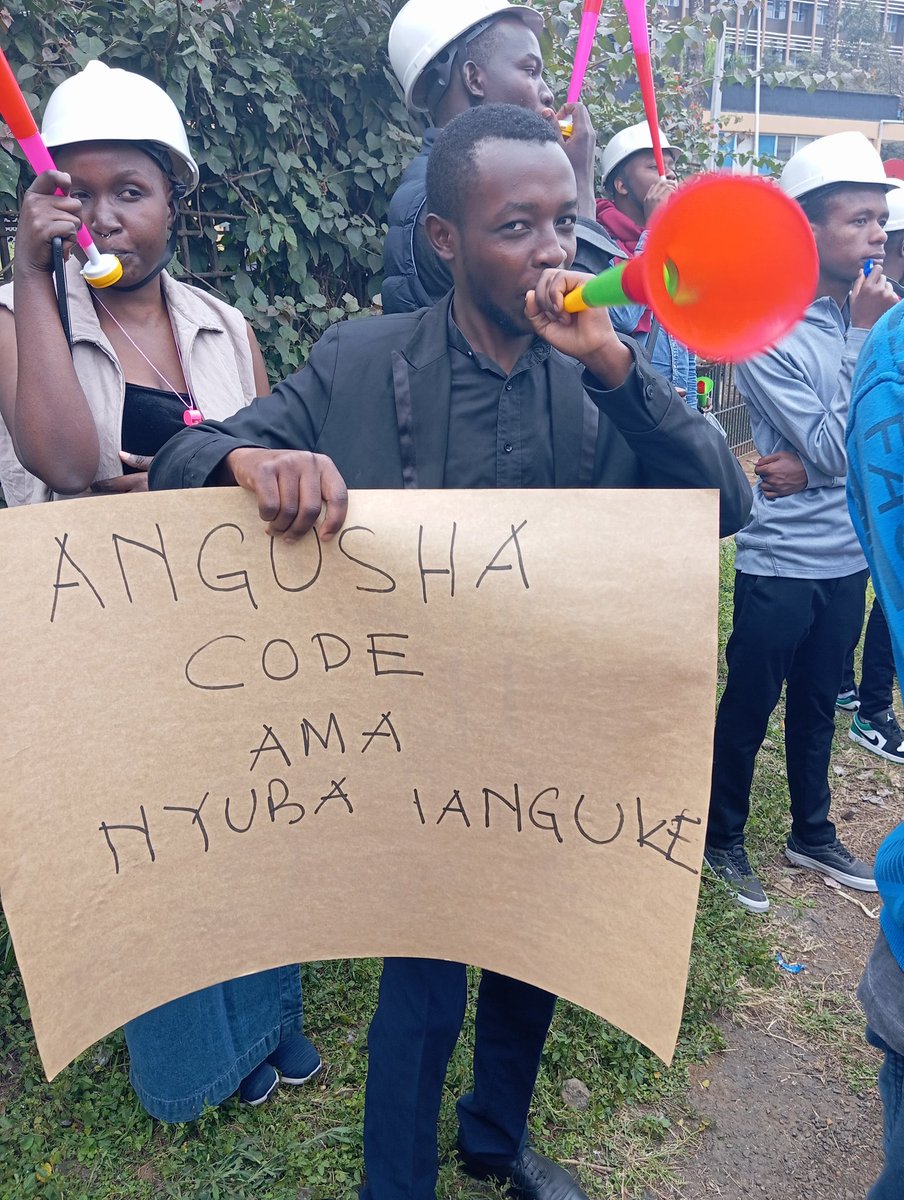 ANGUSHA
CODE
AMA
NYUBA IANGUKE